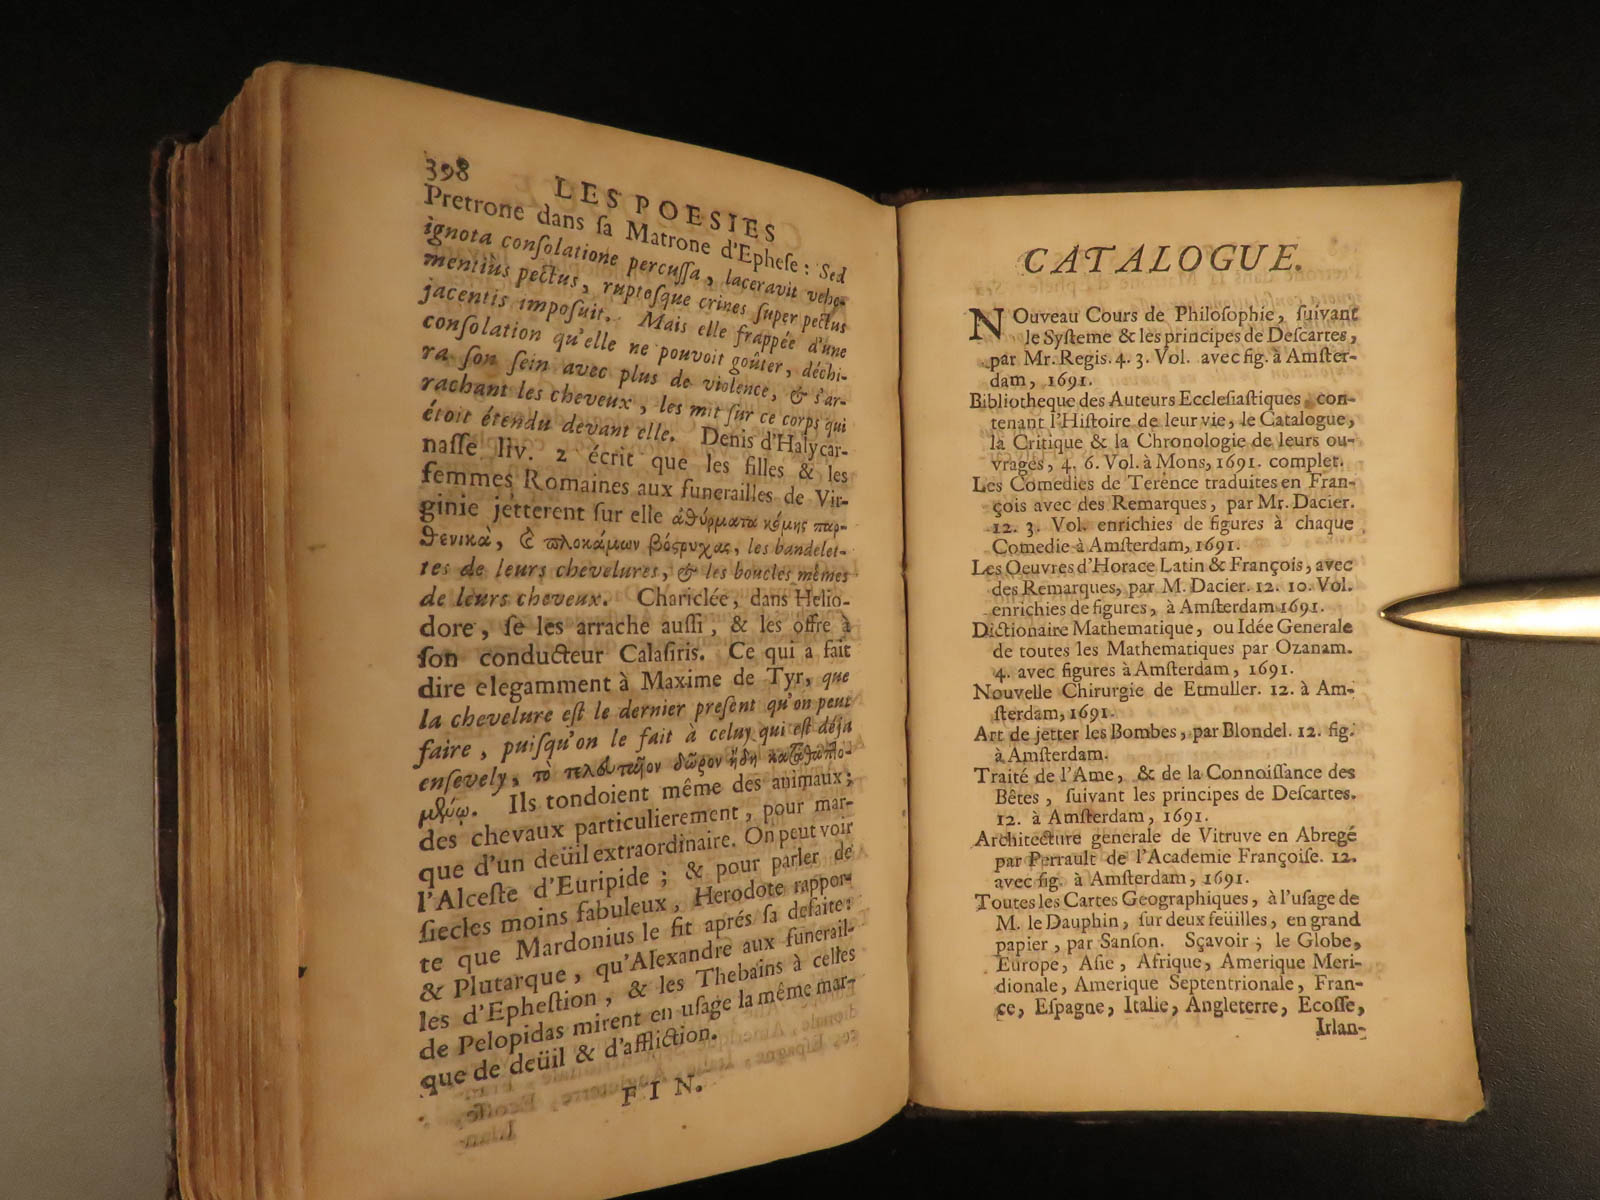 398
LES POESIES
Pretrone dans ſa Matrone d'Epheſe : Sed
ignota conſolatione percuſſa, laceravit vehe-
mentiùs pectus, ruptoſque crines ſuper pectus
jacentis impoſuit. Mais elle frappée d'une
conſolation qu'elle ne pouvoit goûter, déchi-
ra ſon ſein avec plus de violence, & s'ar-
rachant les cheveux, les mit ſur ce corps qui
étoit étendu devant elle. Denis d'Halycar-
naſſe liv. 2 écrit que les filles & les
femmes Romaines aux funerailles de Vir-
ginie jetterent ſur elle ἀθύρματα κόμης παρ-
θενικὰ, & πλοκάμων βόςρυχας, les bandelet-
tes de leurs chevelures, & les boucles mêmes
de leurs cheveux. Chariclée, dans Helio-
dore, ſe les arrache auſſi, & les offre à
ſon conducteur Calaſiris. Ce qui a fait
dire elegamment à Maxime de Tyr, que
la chevelure eſt le dernier preſent qu'on peut
faire, puiſqu'on le fait à celuy qui eſt déja
enſevely, τὸ δῶρον ἤδη
Ils tondoient même des animaux;
des chevaux particulierement, pour mar-
que d'un deüil extraordinaire. On peut voir
l'Alceſte d'Euripide; & pour parler de
ſiecles moins fabuleux, Herodote rappor-
te que Mardonius le fit aprés ſa defaite:
& Plutarque, qu'Alexandre aux funerail-
les d'Epheſtion, & les Thebains à celles
de Pelopidas mirent en uſage la même mar-
que de deüil & d'affliction.
FIN.
CATALOGUE.
NOuveau Cours de Philoſophie, ſuivant
le Syſteme & les principes de Deſcartes,
par Mr. Regis. 4. 3. Vol. avec fig. à Amſter-
dam, 1691.
Bibliotheque des Auteurs Eccleſiaſtiques, con-
tenant l'Hiſtoire de leur vie, le Catalogue,
la Critique & la Chronologie de leurs ou-
vrages, 4. 6. Vol. à Mons, 1691. complet.
Les Comedies de Terence traduites en Fran-
çois avec des Remarques, par Mr. Dacier.
12. 3. Vol. enrichies de figures à chaque
Comedie à Amſterdam, 1691.
Les Oeuvres d'Horace Latin & François, avec
des Remarques, par M. Dacier. 12. 10. Vol.
enrichies de figures, à Amſterdam 1691.
Dictionaire Mathematique, ou Idée Generale
de toutes les Mathematiques par Ozanam.
4. avec figures à Amſterdam, 1691.
Nouvelle Chirurgie de Etmuller. 12. à Am-
ſterdam, 1691.
Art de jetter les Bombes, par Blondel. 12. fig.
à Amſterdam.
Traité de l'Ame, & de la Connoiſſance des
Bêtes, ſuivant les principes de Deſcartes.
12. à Amſterdam, 1691.
Architecture generale de Vitruve en Abregé
par Perrault de l'Academie Françoiſe. 12.
avec fig. à Amſterdam, 1691.
Toutes les Cartes Geographiques, à l'uſage de
M. le Dauphin, ſur deux feüilles, en grand
papier, par Sanſon. Sçavoir; le Globe,
Europe, Aſie, Afrique, Amerique Meri-
dionale, Amerique Septentrionale, Fran-
ce, Eſpagne, Italie, Angleterre, Ecoſſe,
Irlan-